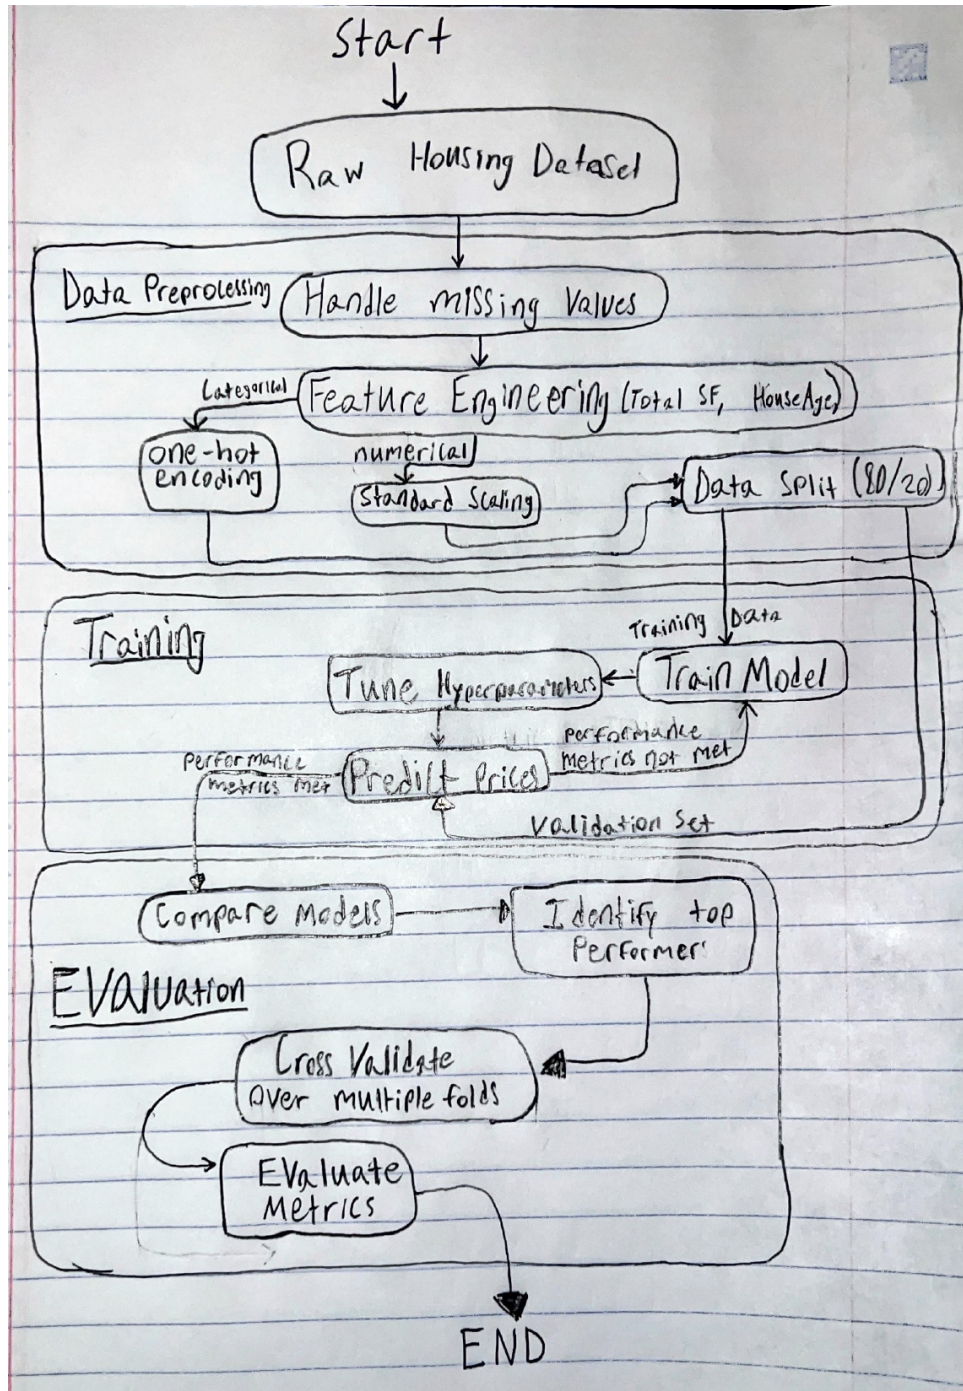 Start
Raw Housing Dataset
Data Preprocessing
Handle missing values
Categorical
Feature Engineering (Total SF, HouseAge)
one-hot
encoding
numerical
Standard Scaling
Data Split (80/20)
Training
Training Data
Tune Hyperparameters
Train Model
Performance
metrics met
Predict Prices
Performance
metrics not met
Validation Set
Compare Models
Identify top
Performer
Evaluation
Cross Validate
Over multiple folds
Evaluate
Metrics
END